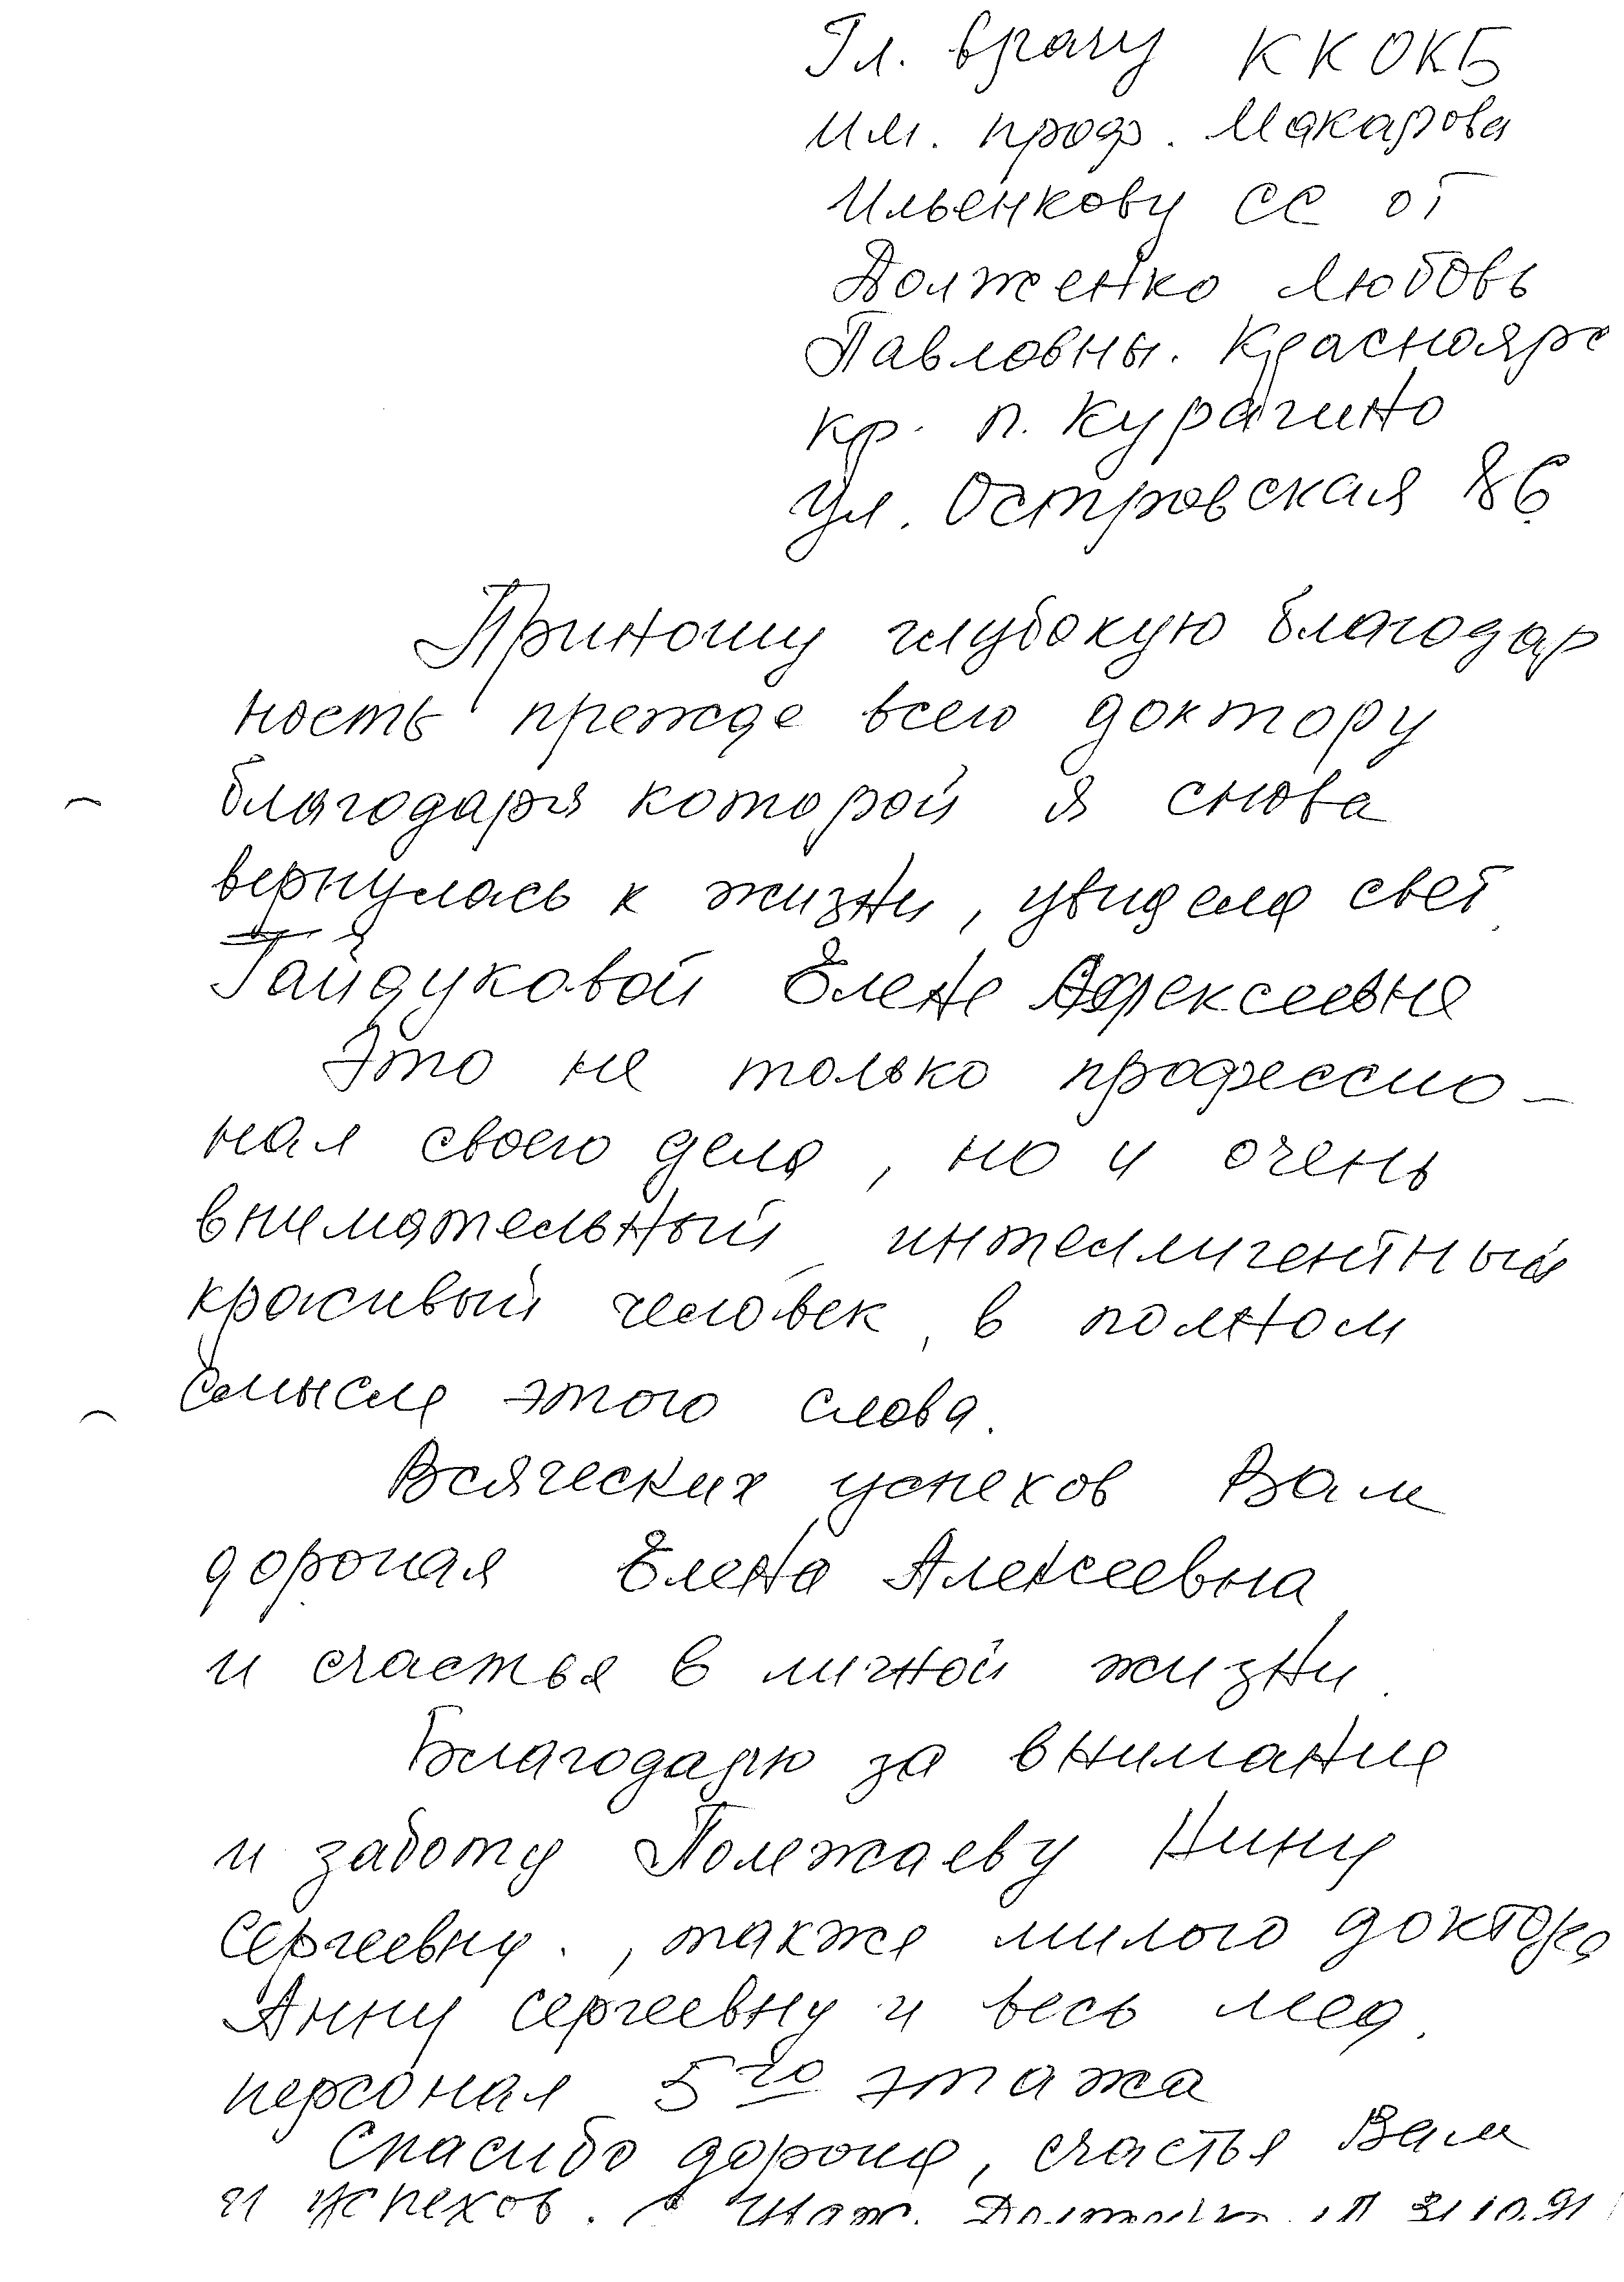 Гл. врачу ККОКБ
им. проф. Макарова
Ильенкову СС от
Долженко Любовь
Павловны. Краснояро
кр. п. Курагино
ул. Островская 86
Приношу глубокую благодар
ность прежде всего доктору
благодаря которой я снова
вернулась к жизни, увидела свет.
Гайдуковой Елене Алексеевне
Это не только профессио-
нал своего дела, но и очень
внимательный интеллигентный
красивый человек, в полном
смысле этого слова.
Всяческих успехов Вам
дорогая Елена Алексеевна
и счастья в личной жизни.
Благодарю за внимание
и заботу Полежаеву Нину
Сергеевну., также милого доктора
Анну Сергеевну и весь мед.
персонал 5го этажа
Спасибо дорогие, счастья Вам
и успехов. С Уваж. 91